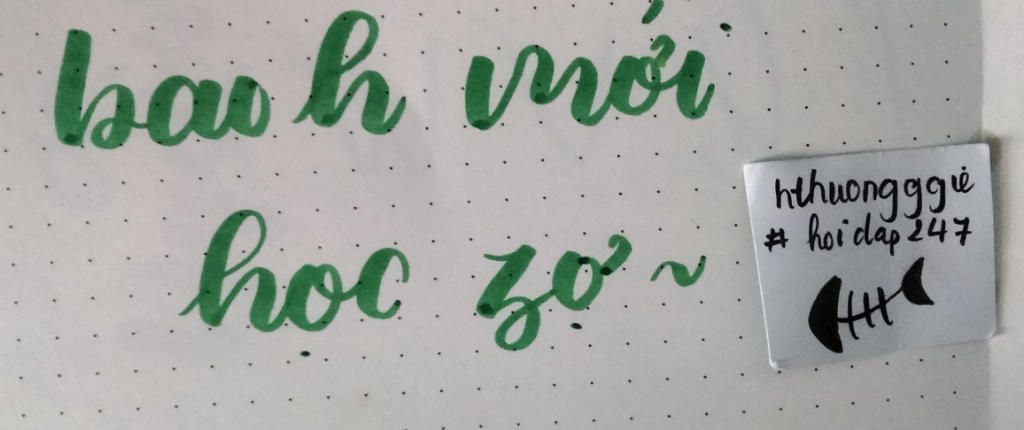 bao h mới
học zợ ~
hthuongggie
# hoidap247